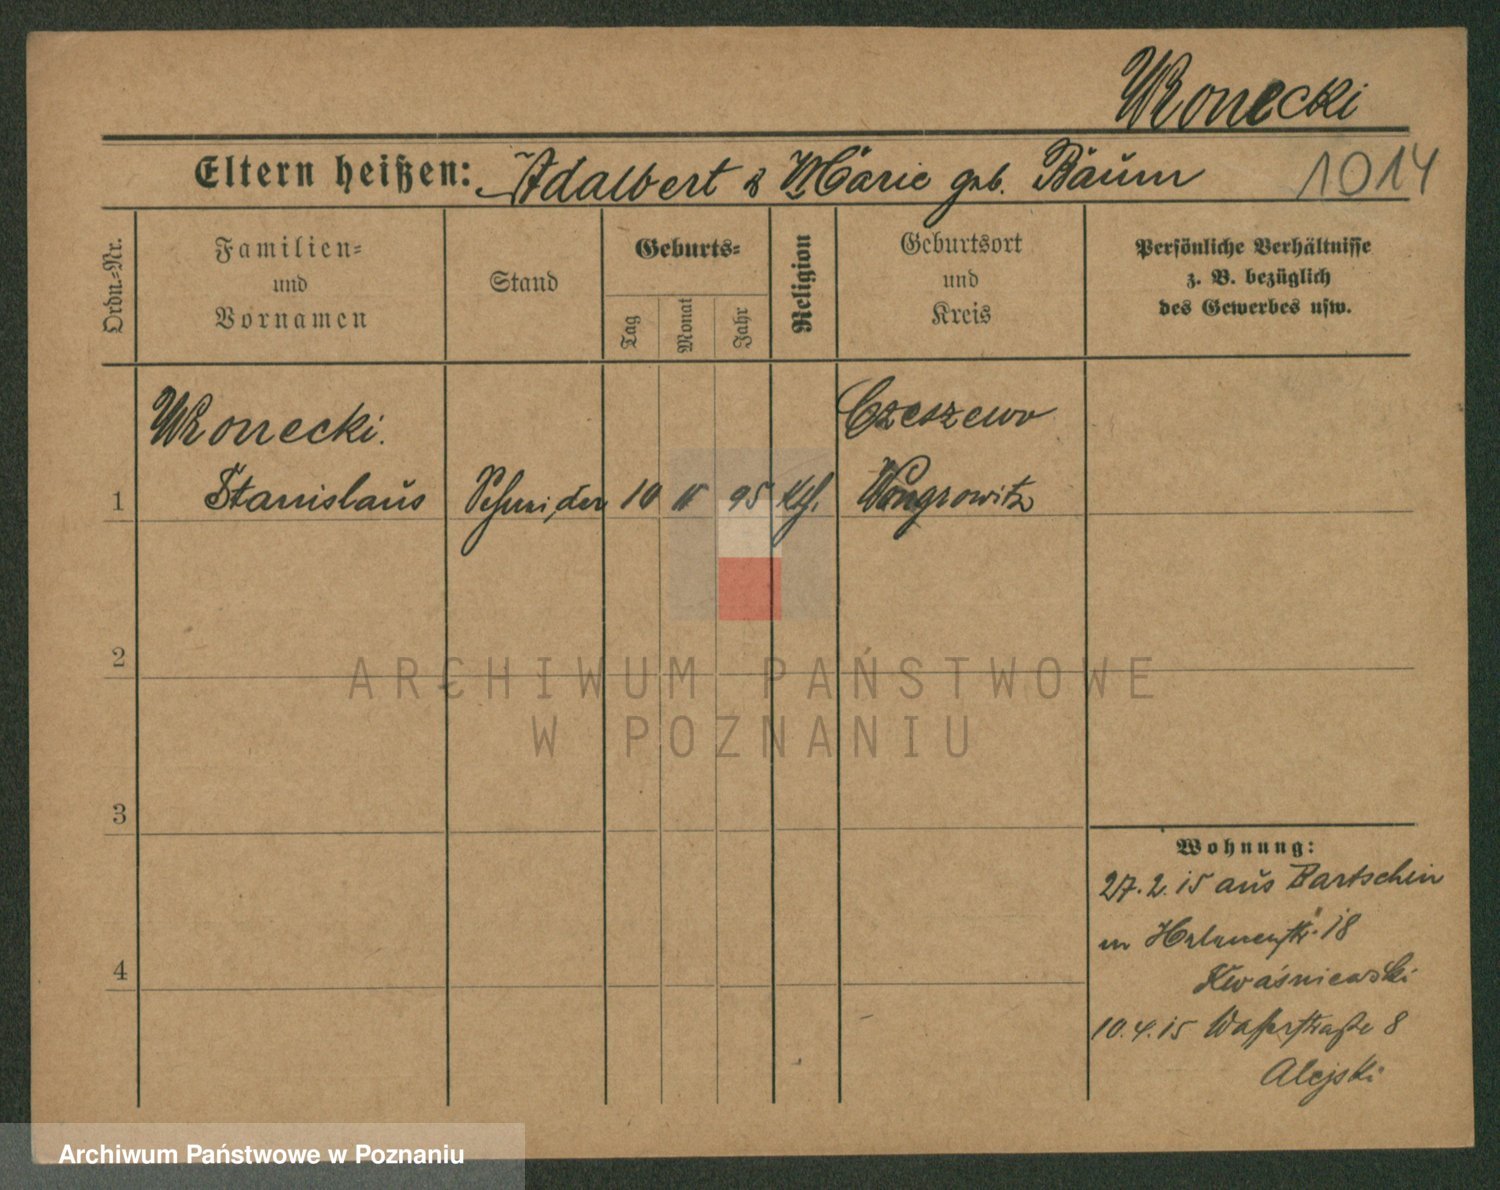 Wronecki
Eltern heißen: Adalbert & Marie geb. Baum 1014
Ordn.-Nr.
Familien-
und
Vornamen
Stand
Geburts-
Tag
Monat
Jahr
Religion
Geburtsort
und
Kreis
Persönliche Verhältnisse
z. B. bezüglich
des Gewerbes usw.
Wronecki. Czeszewo
1 Stanislaus Schneider 10 95 kth. Wongrowitz
2
3
4
Wohnung:
27.2.15 aus Bartschin
18
Kwaśniewski
10.4.15 Wasserstraße 8
Alejski
ARCHIWUM PAŃSTWOWE
W POZNANIU
Archiwum Państwowe w Poznaniu